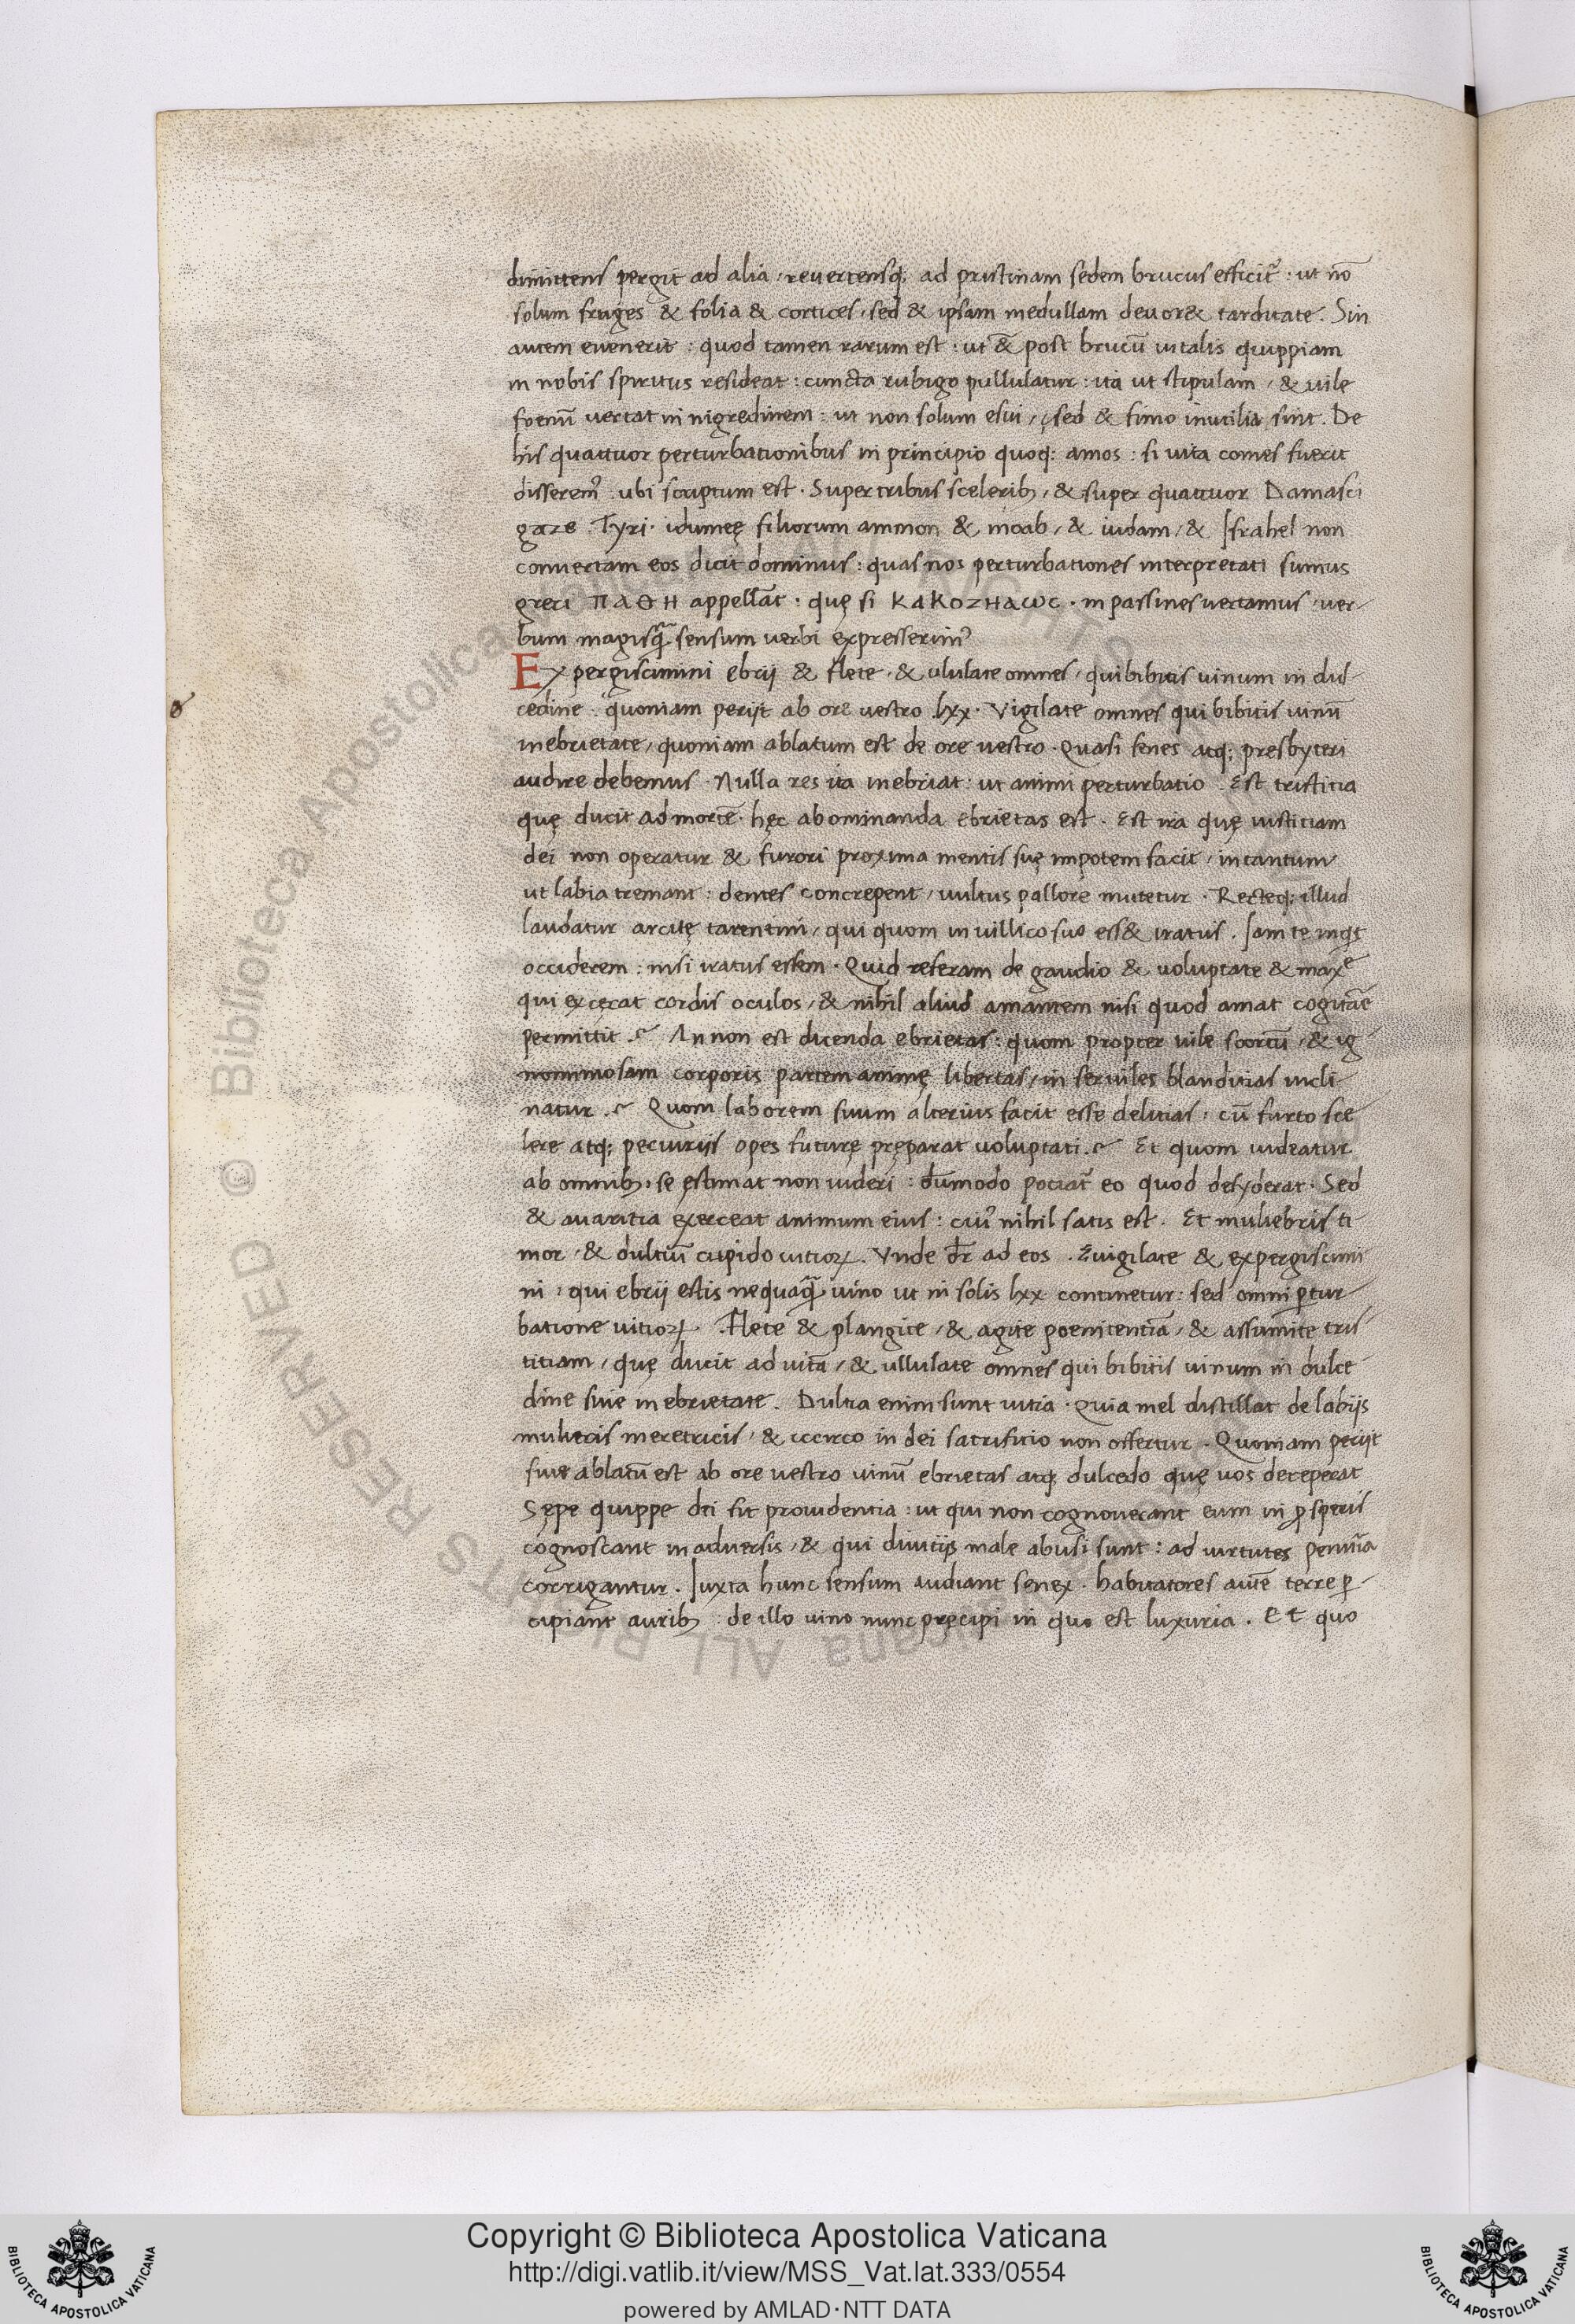 dimittens pergit ad alia : reuertensq; ad pristinam sedem brucus efficit᷑ : ut nō
solum fruges & folia & cortices, sed & ipsam medullam deuor& tarditate. Sin
autem euenerit : quod tamen rarum est : ut & post brucū uitalis quippiam
in nobis spiritus resideat : cuncta rubigo pullulatur : ita ut stipulam, & uile
foenū uertat in nigredinem : ut non solum esui, sed & fimo inutilia sint. De
his quattuor perturbationibus in principio quoq; amos : si uita comes fuerit
disserem᾽ ubi scriptum est. Super tribus scelerib, & super quattuor Damasci
gaze Tyri. idumeę filiorum ammon & moab, & iudam, & Israhel non
conuertam eos dicit dominus : quas nos perturbationes interpretati sumus
greci ΠΑΘΗ appellāt. quę si ΚΑΚΟΖΗΛΩC. in passines uertamus : uer-
bum magisq̄ sensum uerbi expresserim᾽
Expergiscimini ebrij & flete. & ululate omnes, qui bibitis uinum in dul-
cedine. quoniam perijt ab ore uestro lxx. Vigilate omnes qui bibitis uinū
in ebrietate, quoniam ablatum est de ore uestro. Quasi senes atq; presbyteri
audire debemus. Nulla res ita inebriat : ut animi perturbatio. Est tristitia
quę ducit ad mortē. hęc abominanda ebrietas est. Est ira quę iustitiam
dei non operatur & furori proxima mentis suę impotem facit, intantum
ut labia tremant : dentes concrepent, uultus pallore mutetur. Recteq; illud
laudatur arcitę tarentini, qui quom in uillico suo ess& iratus. Iam te inqt
occiderem : nisi iratus essem. Quid referam de gaudio & uoluptate & maxe
qui excęcat cordis oculos, & nihil aliud amantem nisi quod amat cogitāe
permittit. An non est dicenda ebrietas : quom propter uile scortū, & ig
nominosam corporis partem animę libertas, in seruiles blanditias incli
natur. Quom laborem suum alterius facit esse delitias. cū furto sce
lere atq; periuriis opes futurę pręparat uoluptati. Et quom uideatur
ab omnib, se ęstimat non uideri : dūmodo potiat᷑ eo quod desyderat. Sed
& auaritia exerceat animum eius : cui᾽ nihil satis est. Et muliebris ti
mor, & dultiū cupido uitioꝝ. Vnde dr̄ ad eos. Euigilate & expergiscimi
ni : qui ebrii estis nequaq̄ uino ut in solis lxx continetur : sed omni ꝑtur-
batione uitioꝝ. Flete & plangite, & agite poenitentiā, & assumite tris
titiam, quę ducit ad uitā, & ullulate omnes qui bibitis uinum in dulce
dine siue in ebrietate. Dultia enim sunt uitia. Quia mel distillat de labijs
mulieris meretricis, & iccirco in dei sacrificio non offertur. Quoniam perijt
siue ablatū est ab ore uestro uinū ebrietas atq; dulcedo quę uos deceperat
Sępe quippe dei fit prouidentia : ut qui non cognouerant eum in ꝓsperis
cognoscant in aduersis, & qui diuitijs male abusi sunt : ad uirtutes penuria
corrigantur. Iuxta hunc sensum audiant senex. habitatores autē terre ꝑ-
cipiant aurib : de illo uino nunc pręcipi in quo est luxuria. Et quo
Copyright © Biblioteca Apostolica Vaticana
http://digi.vatlib.it/view/MSS_Vat.lat.333/0554
powered by AMLAD·NTT DATA